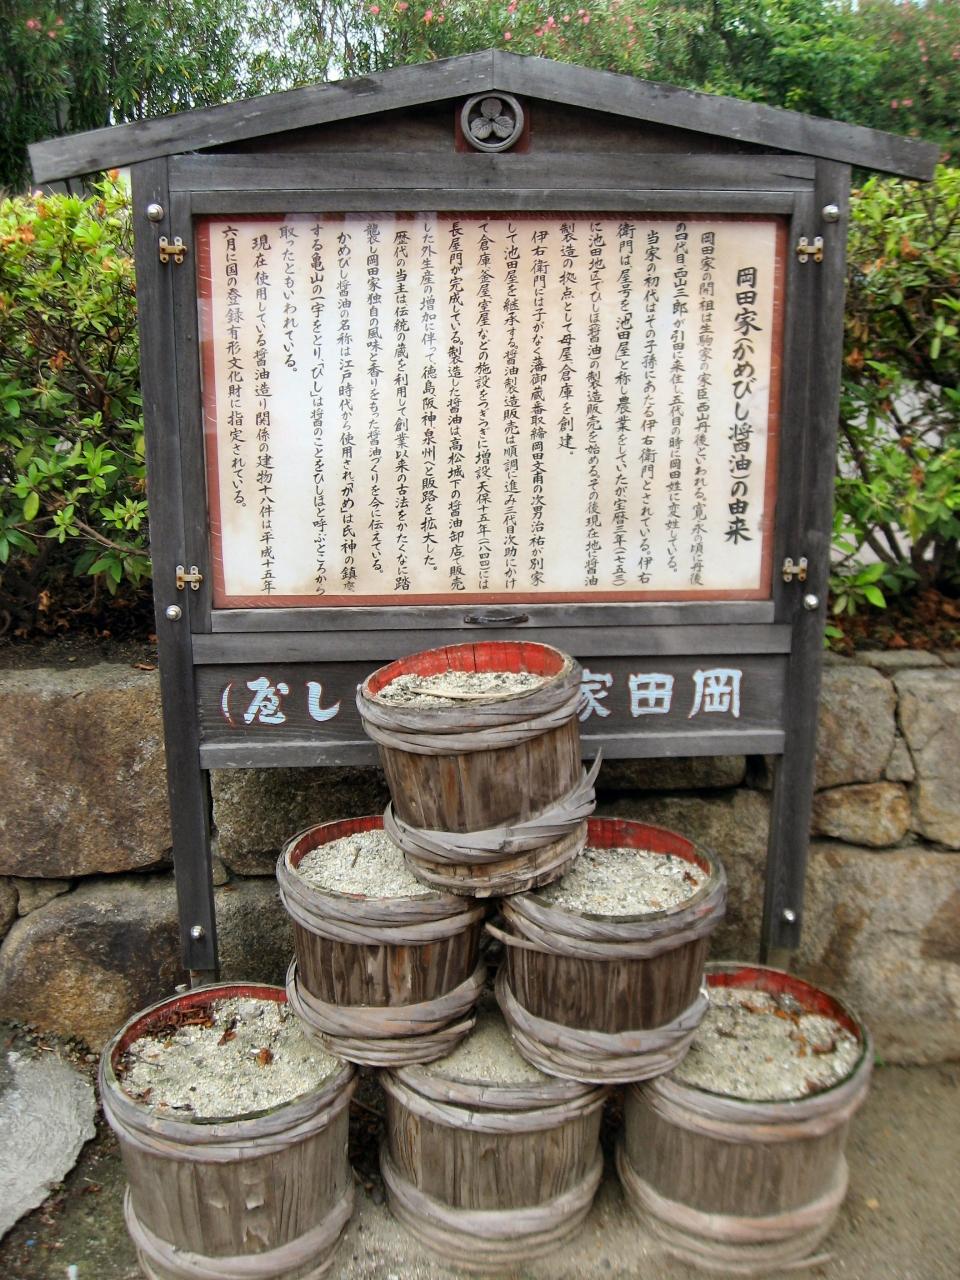 岡田家(かめびし醤油)の由来
岡田家の開祖は生駒家の家臣西山丹後といわれる。寛永の頃に丹後
の四代目、西山三郎が引田に来住し五代目の時に岡田姓に変姓している。
当家の初代はその子孫にあたる伊右衛門とされている。伊右
衛門は屋号を「池田屋」と称し農業をしていたが宝暦三年(一七五三)
に池田地区でひしほ(醤油)の製造販売を始める。その後現在地に醤油
製造の拠点として母屋、倉庫を創建。
伊右衛門には子がなく藩御蔵番取締岡田文甫の次男治祐が別家
して池田屋を継承する。醤油製造販売は順調に進み三代目次助にかけ
て倉庫、釜屋、室屋などの施設をつぎつぎに増設、天保十五年(一八四四)には
長屋門が完成している。製造した醤油は高松城下の醤油卸店で販売
した外、生産の増加に伴って徳島、阪神、泉州へと販路を拡大した。
歴代の当主は伝統の蔵を利用して創業以来の古法をかたくなに踏
襲し岡田家独自の風味と香りをもった醤油づくりを今に伝えている。
かめびし醤油の名称は江戸時代から使用され、「かめ」は氏神の鎮座
する亀山の一字をとり、「びし」は醤のことをひしほと呼ぶところから
取ったともいわれている。
現在使用している醤油造り関係の建物十八件は平成十五年
六月に国の登録有形文化財に指定されている。
岡田家 し屋)